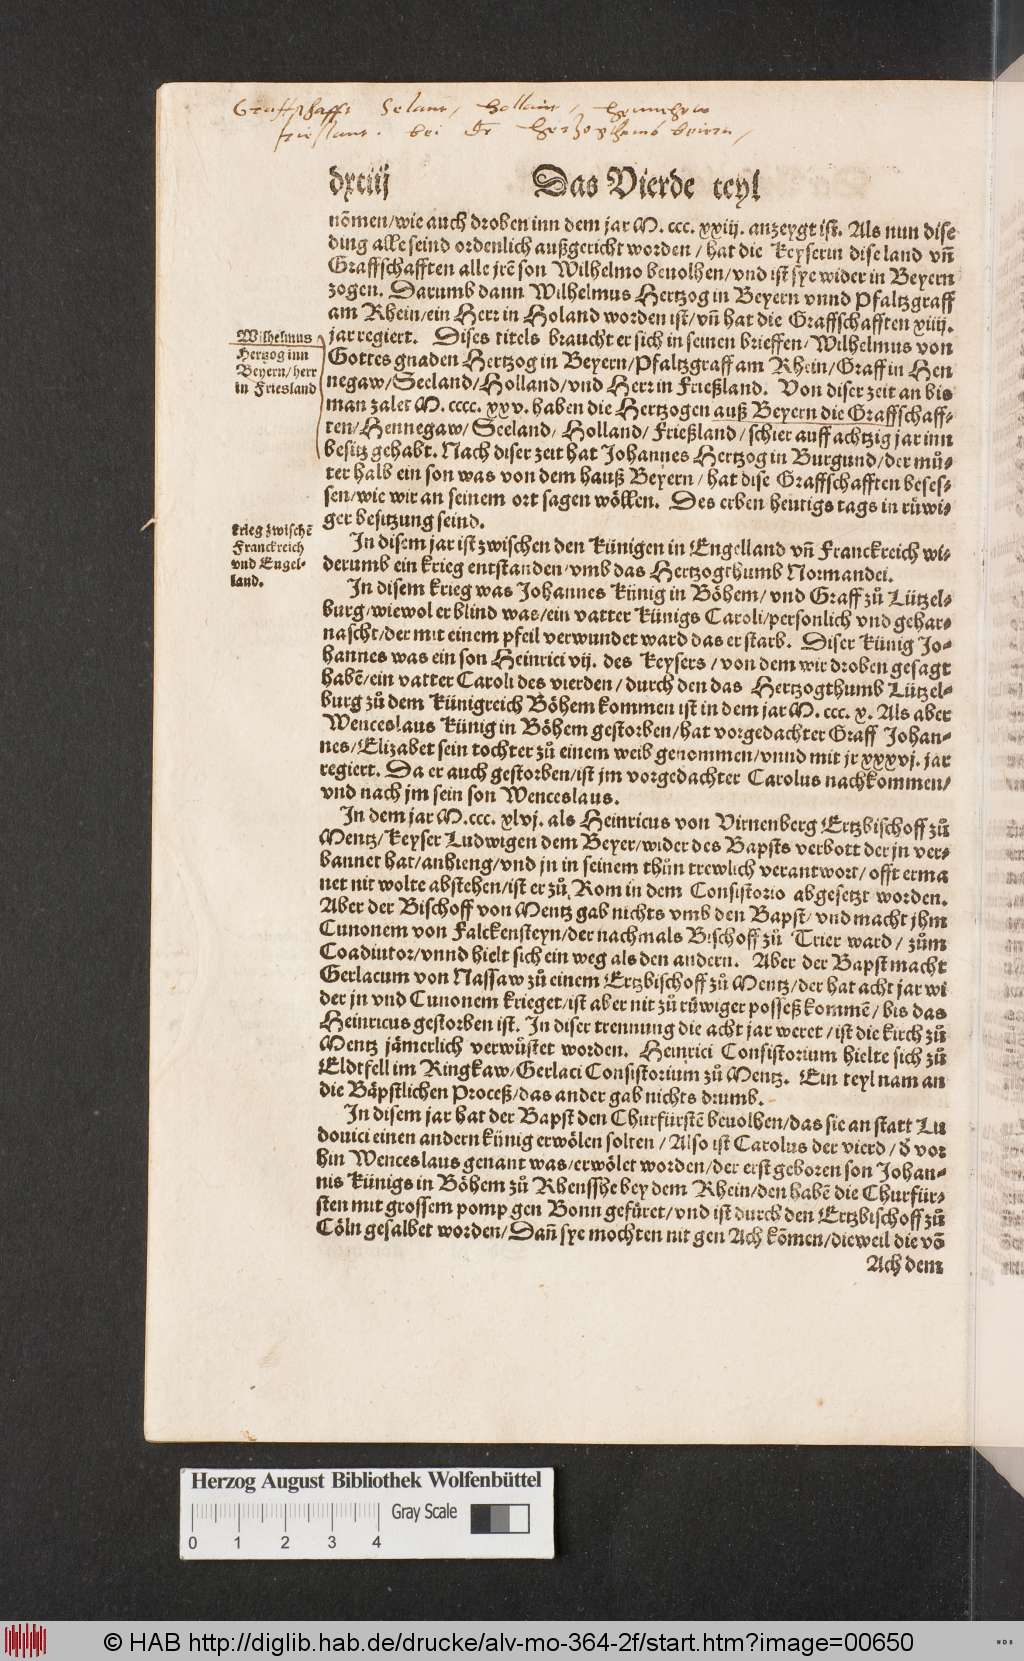 Graffschafft Selant, Hollant,
frieslant. bei
dxciiij Das Vierde teyl
nõmen/wie auch droben inn dem jar M. ccc. xxiij. anzeygt ist. Als nun dise
ding alle seind ordenlich außgericht worden/hat die Keyserin dise land vñ
Graffschafften alle jrẽ son Wilhelmo beuolhen/vnd ist sye wider in Beyern
zogen. Darumb dann Wilhelmus Hertzog in Beyern vnnd Pfaltzgraff
am Rhein/ein Herr in Holand worden ist/vñ hat die Graffschafften xiiij.
jar regiert. Dises titels braucht er sich in seinen brieffen/Wilhelmus von
Gottes gnaden Hertzog in Beyern/Pfaltzgraff am Rhein/Graff in Hen
negaw/Seeland/Holland/vnd Herr in Frießland. Von diser zeit an bis
man zalet M. cccc. xxv. haben die Hertzogen auß Beyern die Graffschaff-
ten/Hennegaw/Seeland/Holland/Frießland/schier auff achtzig jar inn
besitz gehabt. Nach diser zeit hat Johannes Hertzog in Burgund/der mů-
ter halb ein son was von dem hauß Beyern/hat dise Graffschafften beses-
sen/wie wir an seinem ort sagen wöllen. Des erben heutigs tags in růwi-
ger besitzung seind.
Wilhelmus
Hertzog inn
Beyern/herr
in Friesland
In disem jar ist zwischen den Künigen in Engelland vñ Franckreich wi-
derumb ein krieg entstanden/vmb das Hertzogthumb Normandei.
krieg zwischẽ
Franckreich
vnd Engel-
land.
In disem krieg was Johannes Künig in Böhem/vnd Graff zů Lützel-
burg/wiewol er blind was/ein vatter Künigs Caroli/persönlich vnd gehar-
nascht/der mit einem pfeil verwundet ward das er starb. Diser Künig Jo-
hannes was ein son Heinrici vij. des Keysers/von dem wir droben gesagt
habẽ/ein vatter Caroli des vierden/durch den das Hertzogthumb Lützel-
burg zů dem Künigreich Böhem kommen ist in dem jar M. ccc. x. Als aber
Wenceslaus Künig in Böhem gestorben/hat vorgedachter Graff Johan-
nes/Elizabet sein tochter zů einem weib genommen/vnnd mit jr xxxvj. jar
regiert. Da er auch gestorben/ist jm vorgedachter Carolus nachkommen/
vnd nach jm sein son Wenceslaus.
In dem jar M.ccc. xlvj. als Heinricus von Virnenberg Ertzbischoff zů
Mentz/Keyser Ludwigen dem Beyer/wider des Bapsts verbott der jn ver-
bannet hat/anhieng/vnd jn in seinem thůn trewlich verantwort/offt erma
net nit wolte abstehen/ist er zů Rom in dem Consistorio abgesetzt worden.
Aber der Bischoff von Mentz gab nichts vmb den Bapst/vnd macht jhm
Cunonem von Falckensteyn/der nachmals Bischoff zů Trier ward/zům
Coadiutor/vnnd hielt sich ein weg als den andern. Aber der Bapst macht
Gerlacum von Nassaw zů einem Ertzbischoff zů Mentz/der hat acht jar wi
der jn vnd Cunonem krieget/ist aber nit zů růwiger posseß kommẽ/bis das
Heinricus gestorben ist. In diser trennung die acht jar weret/ist die kirch zů
Mentz jämerlich verwüstet worden. Heinrici Consistorium hielte sich zů
Eldtfell im Ringkaw/Gerlaci Consistorium zů Mentz. Ein teyl nam an
die Bäpstlichen Proceß/das ander gab nichts drumb.
In disem jar hat der Bapst den Churfürstẽ beuolhen/das sie an statt Lu
douici einen andern künig erwölen solten/Also ist Carolus der vierd/d̃ vor
hin Wenceslaus genant was/erwölet worden/der erst geboren son Johan-
nis Künigs in Böhem zů Rhensshe bey dem Rhein/den habẽ die Churfür-
sten mit grossem pomp gen Bonn gefüret/vnd ist durch den Ertzbischoff zů
Cöln gesalbet worden/Dañ sye mochten nit gen Ach kõmen/dieweil die võ
Ach dem
Herzog August Bibliothek Wolfenbüttel
Gray Scale
0 1 2 3 4
© HAB http://diglib.hab.de/drucke/alv-mo-364-2f/start.htm?image=00650